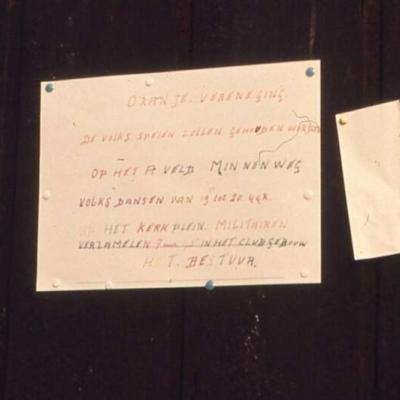 ORANJE. VERENEGING.
DE VOLKS SPELEN ZULLEN GEHOUDEN WERDEN
OP HET A VELD MINNENWEG
VOLKS DANSEN VAN 19 tot 20 uur.
OP HET KERKPLEIN. MILITAIREN
VERZAMELEN IN HET CLUBGEBOUW
HET. BESTUUR.